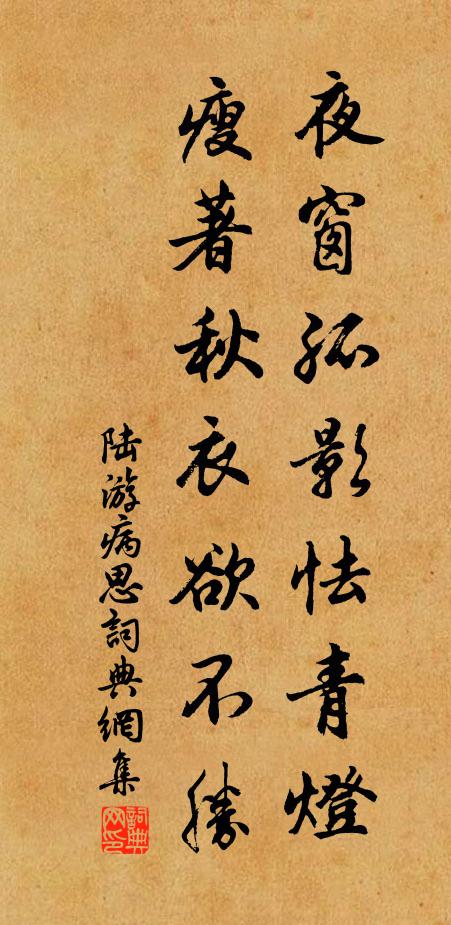 夜窗孤影怯青燈
瘦著秋衣欲不勝
陆游病思詞典網集
詞典网印